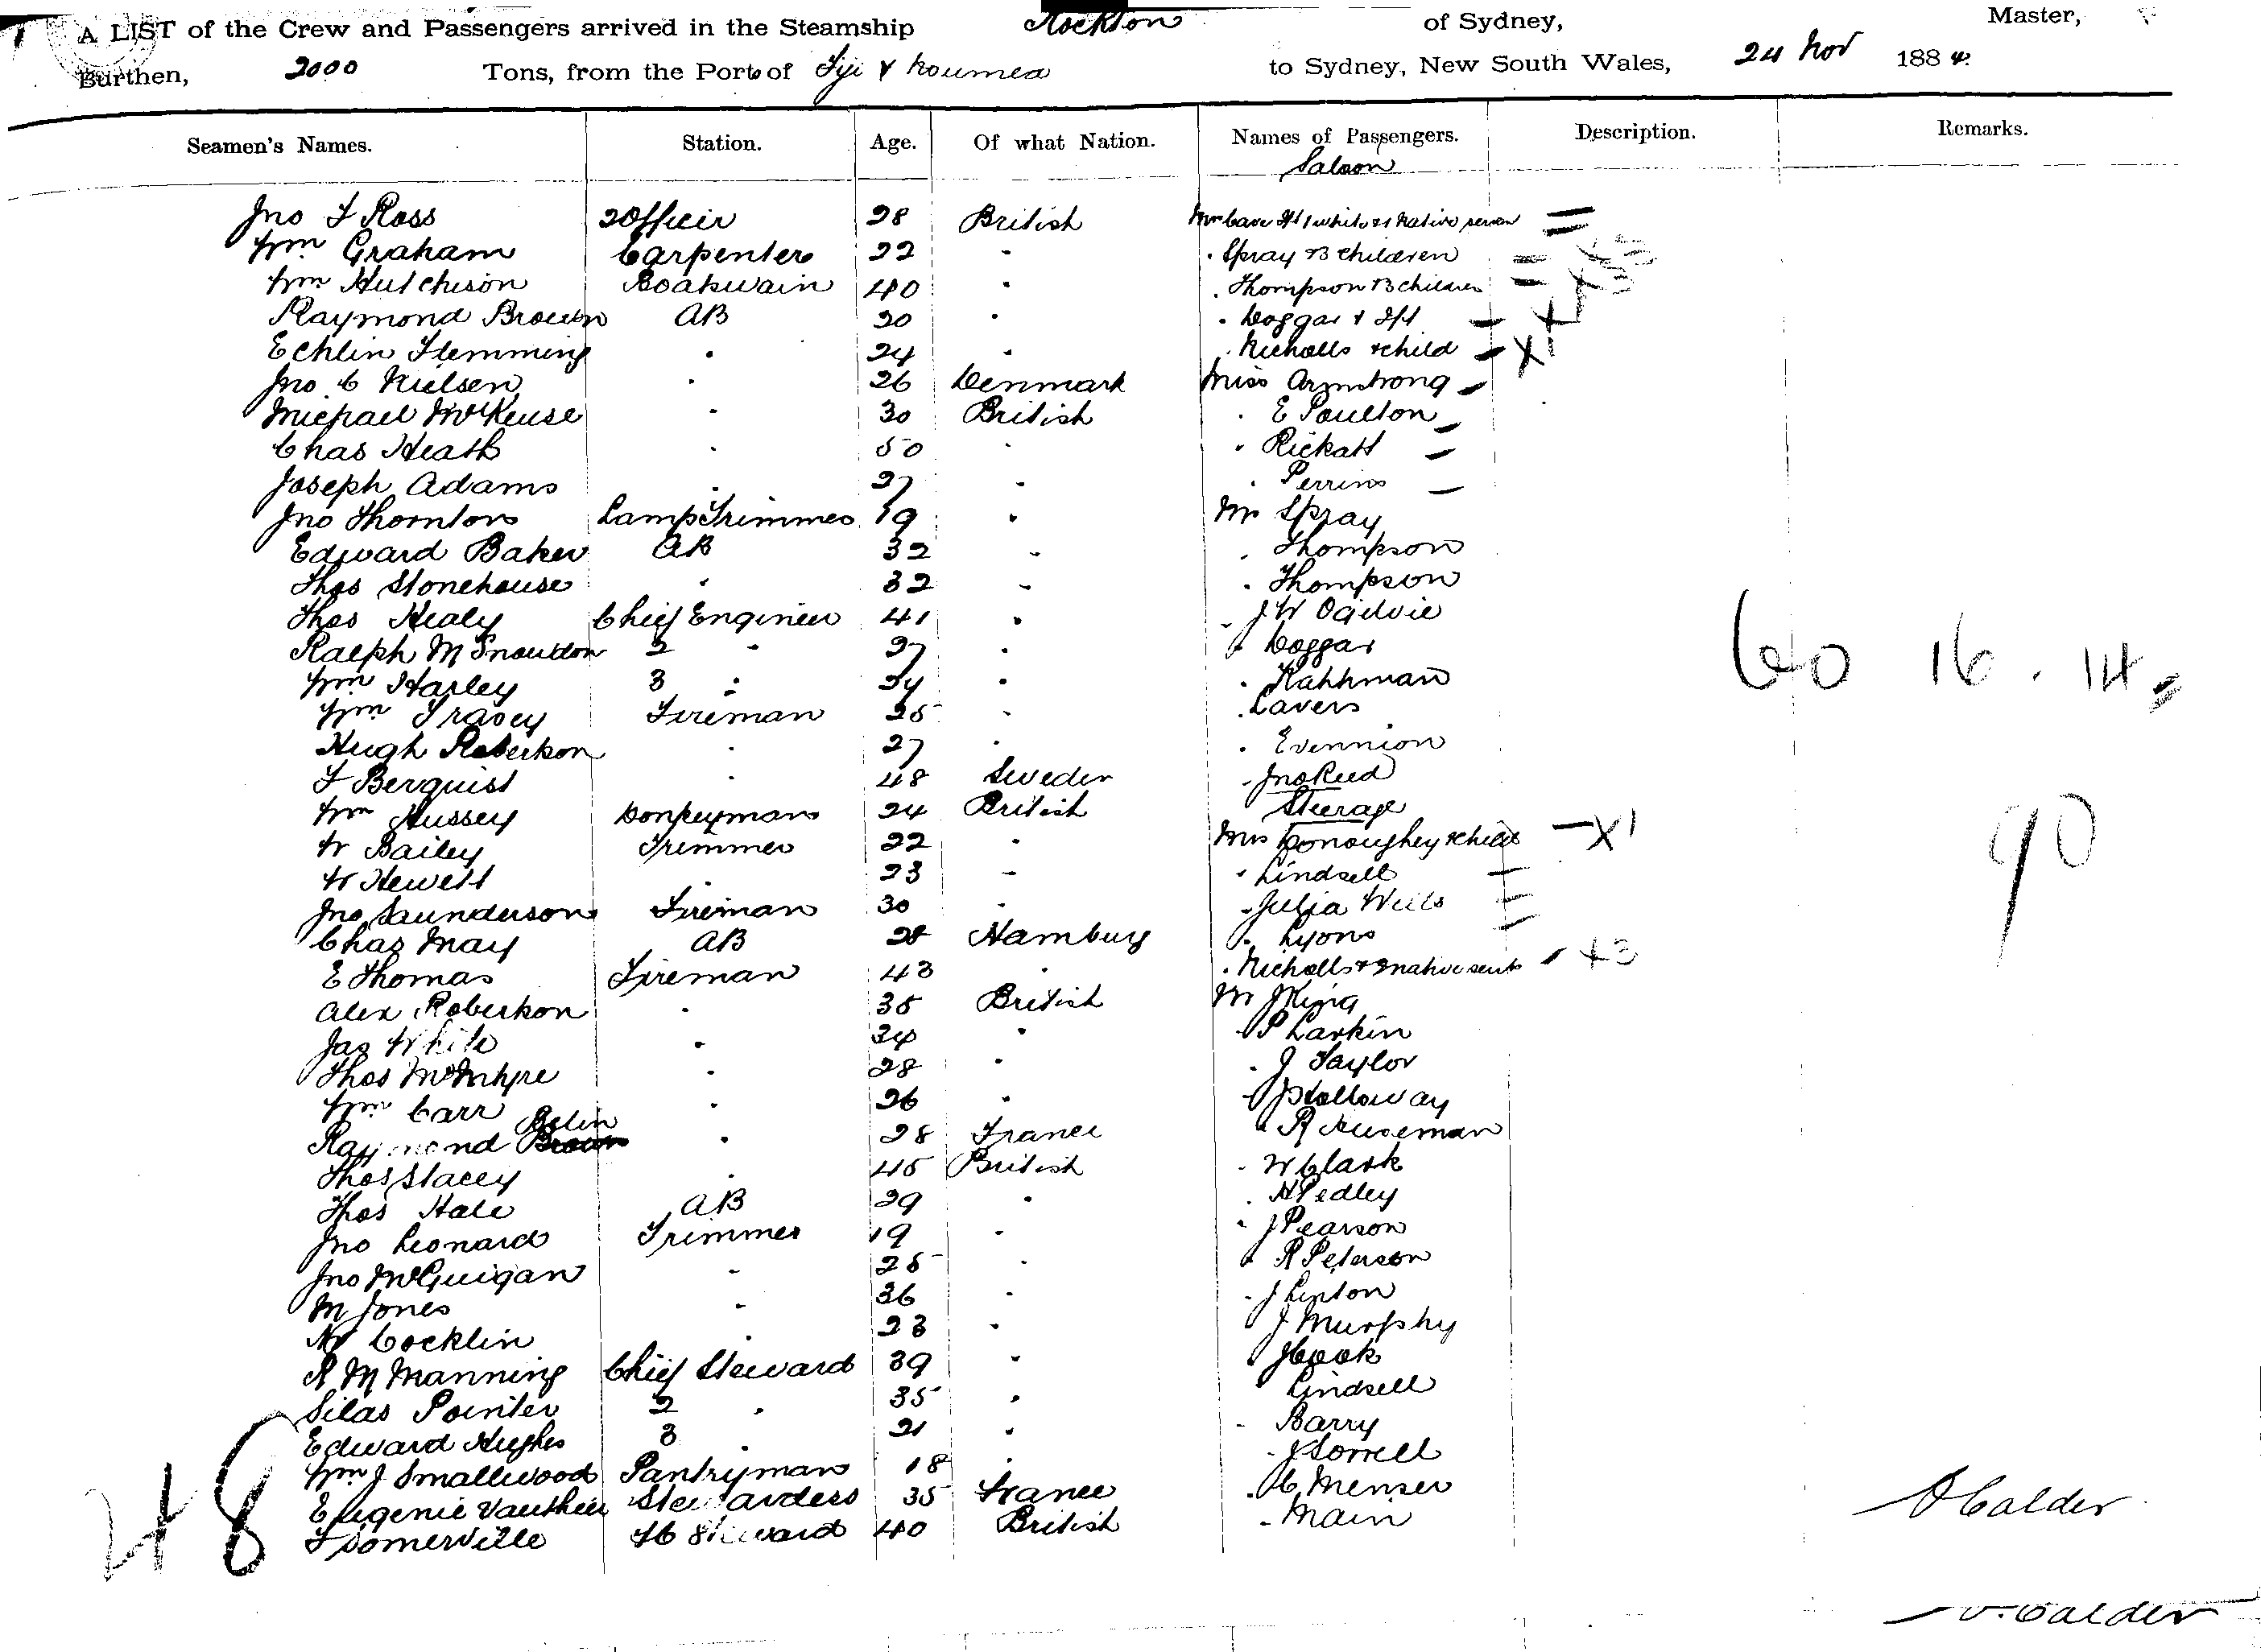 A LIST of the Crew and Passengers arrived in the Steamship Rockton of Sydney, Master,
Burthen, 2000 Tons, from the Port of Fiji & Noumea to Sydney, New South Wales, 24 Nov 1884.
Seamen's Names. Station. Age. Of what Nation. Names of Passengers. Description. Remarks.
Saloon
Jno F Ross 2 Officer 28 British Mrs Cave 1 white & 1 Native
Wm Graham Carpenter 22 " " Spray & 3 Children
Wm Hutchison Boatswain 40 " " Thompson & 3 children
Raymond Brown AB 20 " " Doggar & Inf
Echlin Flemming " 24 " " Nicholls & child X 1
Jno C Nielsen " 26 Denmark Miss Armstrong
Michael McKeuse " 30 British " E Poulton
Chas Heath " 50 " " Rickatt
Joseph Adams " 27 " " Perrins
Jno Thornton Lamp Trimmer 19 " Mr Spray
Edward Baker AB 32 " " Thompson
Thos Stonehouse " 32 " " Thompson
Thos Healy Chief Engineer 41 " " J W Ogilvie
Ralph M Snowdon 2 " 27 " " Doggar
Wm Harley 3 " 24 " " Kahhman
60 16 . 14
Wm Tracey Fireman 25 " " Lavers
Hugh Robertson " 27 " " Evennion
F Berquist " 48 Sweden " Jno Reed
Wm Hussey Donkeyman 24 British Steerage
W Bailey Trimmer 22 " Mrs Conoughey & child X 1
90
W Hewett " 23 " " Lindsell
Jno Saunderson Fireman 30 " " Julia Wills
Chas May AB 28 Hamburg " Lyons
E Thomas Fireman 43 " " Nicholls & native X 3
Alex Robertson " 35 British Mr J King
Jas White " 34 " " P Larkin
Thos McIntyre " 28 " " J Taylor
Wm Carr " 26 " " J Holloway
Raymond Brown " 28 France " R Huseman
Thos Stacey " 45 British " W Clark
Thos Hale AB 29 " " H Pedley
Jno Leonard Trimmer 19 " " J Pearson
Jno McGuigan " 25 " " R Peterson
M Jones " 36 " " J Linton
Cocklin " 23 " J Murphy
R M Manning Chief Steward 39 " " J Cook
Silas Pointer 2 " 35 " Lindsell
Edward Hughes 3 " 21 " " Barry
Wm J Smallwood Pantryman 18 " " J Sorrell
Eugenie Vauthier Stewardess 35 France " C Menser
F Somerville Steward 40 British " Main
48
D Calder
D. Calder